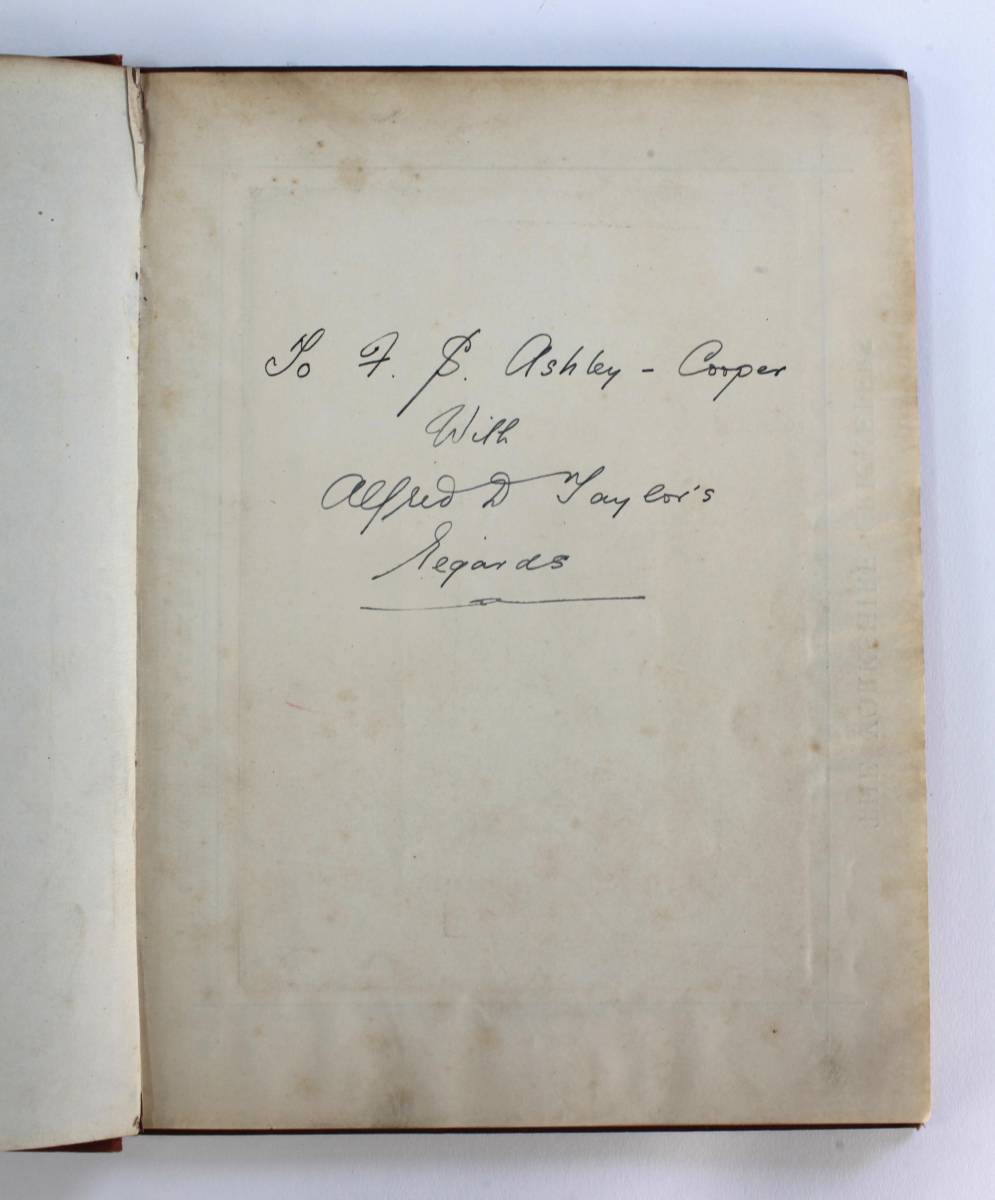 To F. S. Ashley - Cooper
With
Alfred D Taylor's
Regards